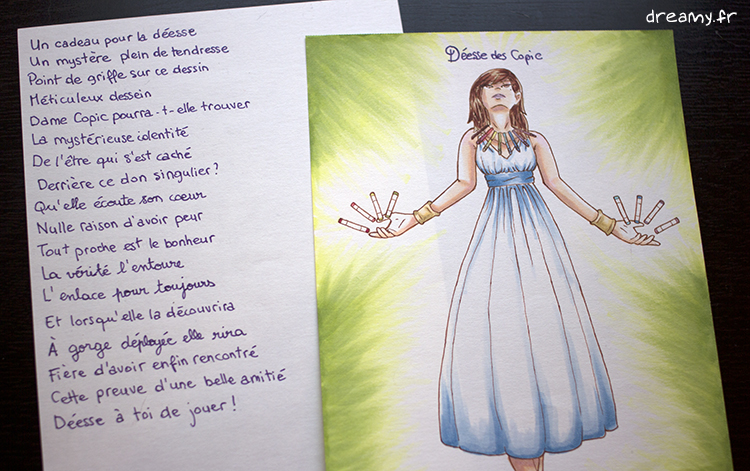 dreamy.fr
Un cadeau pour la déesse
Un mystère plein de tendresse
Point de griffe sur ce dessin
Méticuleux dessein
Dame Copic pourra-t-elle trouver
La mystérieuse identité
De l'être qui s'est caché
Derrière ce don singulier ?
Qu'elle écoute son coeur
Nulle raison d'avoir peur
Tout proche est le bonheur
La vérité l'entoure
L'enlace pour toujours
Et lorsqu'elle la découvrira
À gorge déployée elle rira
Fière d'avoir enfin rencontré
Cette preuve d'une belle amitié
Déesse à toi de jouer !
Déesse des Copic